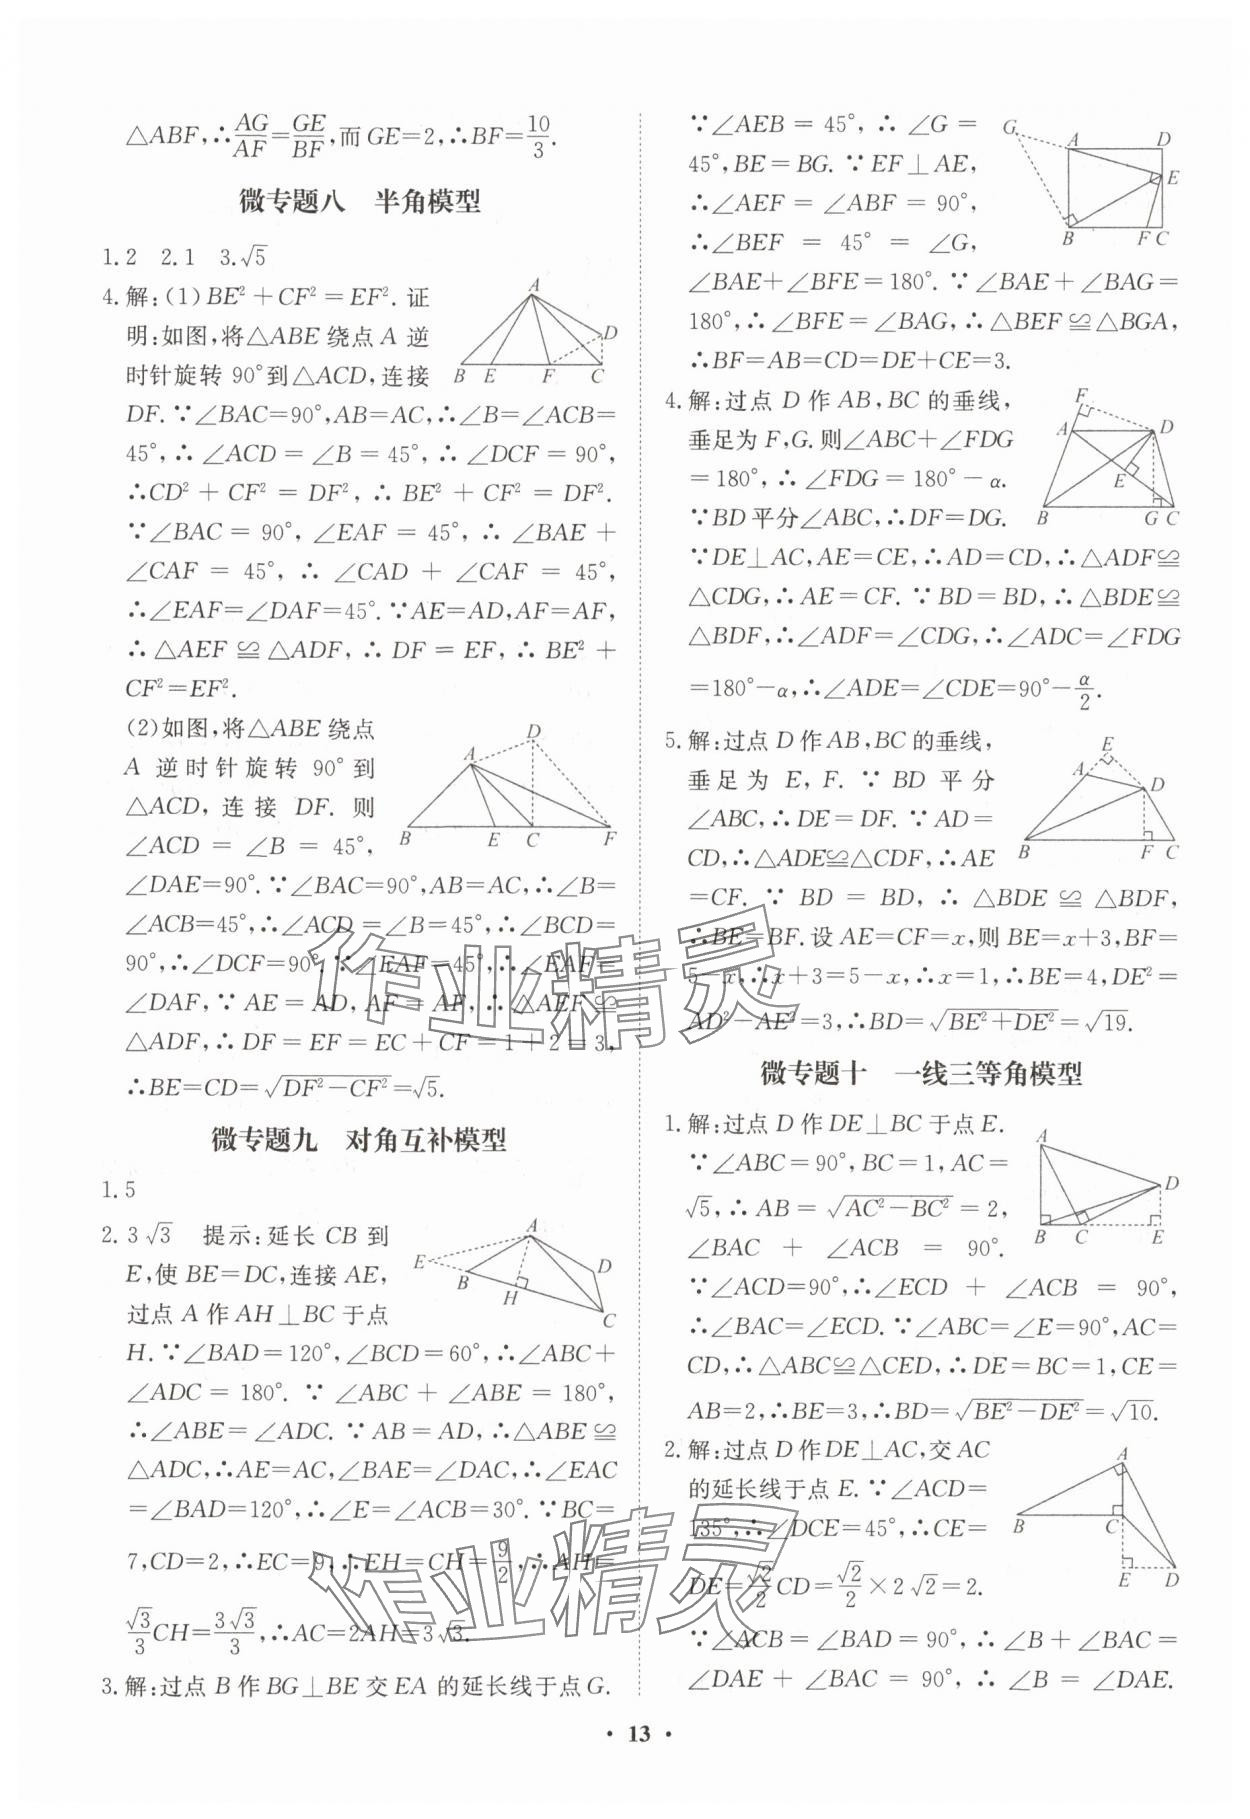 △ABF,∴AG/AF=GE/BF,而GE=2,∴BF=10/3.
微专题八 半角模型
1.2 2.1 3.√5
4.解:(1)BE²+CF²=EF².证
明:如图,将△ABE绕点A逆
时针旋转90°到△ACD,连接
DF.∵∠BAC=90°,AB=AC,∴∠B=∠ACB=
45°,∴∠ACD=∠B=45°,∴∠DCF=90°,
∴CD²+CF²=DF²,∴BE²+CF²=DF².
∵∠BAC=90°,∠EAF=45°,∴∠BAE+
∠CAF=45°,∴∠CAD+∠CAF=45°,
∴∠EAF=∠DAF=45°.∵AE=AD,AF=AF,
∴△AEF≌△ADF,∴DF=EF,∴BE²+
CF²=EF².
A
D
B E F C
(2)如图,将△ABE绕点
A逆时针旋转90°到
△ACD,连接DF.则
∠ACD=∠B=45°,
∠DAE=90°.∵∠BAC=90°,AB=AC,∴∠B=
∠ACB=45°,∴∠ACD=∠B=45°,∴∠BCD=
90°,∴∠DCF=90°.∵∠EAF=45°,∴∠EAF=
∠DAF,∵AE=AD,AF=AF,∴△AEF≌
△ADF,∴DF=EF=EC+CF=1+2=3,
∴BE=CD=√(DF²-CF²)=√5.
D
A
B E C F
微专题九 对角互补模型
1.5
2.3√3 提示:延长CB到
E,使BE=DC,连接AE,
过点A作AH⊥BC于点
H.∵∠BAD=120°,∠BCD=60°,∴∠ABC+
∠ADC=180°.∵∠ABC+∠ABE=180°,
∴∠ABE=∠ADC.∵AB=AD,∴△ABE≌
△ADC,∴AE=AC,∠BAE=∠DAC,∴∠EAC
=∠BAD=120°,∴∠E=∠ACB=30°.∵BC=
7,CD=2,∴EC=9,∴EH=CH=9/2,∴AH=
√3/3CH=3√3/2,∴AC=2AH=3√3.
A
E
B
D
H
C
3.解:过点B作BG⊥BE交EA的延长线于点G.
∵∠AEB=45°,∴∠G=
45°,BE=BG.∵EF⊥AE,
∴∠AEF=∠ABF=90°,
∴∠BEF=45°=∠G,
∠BAE+∠BFE=180°.∵∠BAE+∠BAG=
180°,∴∠BFE=∠BAG,∴△BEF≌△BGA,
∴BF=AB=CD=DE+CE=3.
G A D
E
B F C
4.解:过点D作AB,BC的垂线,
垂足为F,G.则∠ABC+∠FDG
=180°,∴∠FDG=180°-α.
∵BD平分∠ABC,∴DF=DG.
∵DE⊥AC,AE=CE,∴AD=CD,∴△ADF≌
△CDG,∴AE=CF.∵BD=BD,∴△BDE≌
△BDF,∴∠ADF=∠CDG,∴∠ADC=∠FDG
=180°-α,∴∠ADE=∠CDE=90°-α/2.
F
A D
E
B G C
5.解:过点D作AB,BC的垂线,
垂足为E,F.∵BD平分
∠ABC,∴DE=DF.∵AD=
CD,∴△ADE≌△CDF,∴AE
=CF.∵BD=BD,∴△BDE≌△BDF,
∴BE=BF.设AE=CF=x,则BE=x+3,BF=
5-x,∴x+3=5-x,∴x=1,∴BE=4,DE²=
AD²-AE²=3,∴BD=√(BE²+DE²)=√19.
E
A D
B F C
微专题十 一线三等角模型
1.解:过点D作DE⊥BC于点E.
∵∠ABC=90°,BC=1,AC=
√5,∴AB=√(AC²-BC²)=2,
∠BAC+∠ACB=90°.
∵∠ACD=90°,∴∠ECD+∠ACB=90°,
∴∠BAC=∠ECD.∵∠ABC=∠E=90°,AC=
CD,∴△ABC≌△CED,∴DE=BC=1,CE=
AB=2,∴BE=3,∴BD=√(BE²-DE²)=√10.
A
D
B C E
2.解:过点D作DE⊥AC,交AC
的延长线于点E.∵∠ACD=
135°,∴∠DCE=45°,∴CE=
DE=√2/2CD=√2/2×2√2=2.
∵∠ACB=∠BAD=90°,∴∠B+∠BAC=
∠DAE+∠BAC=90°,∴∠B=∠DAE.
A
B C
E D
作业精灵
作业精灵
• 13 •